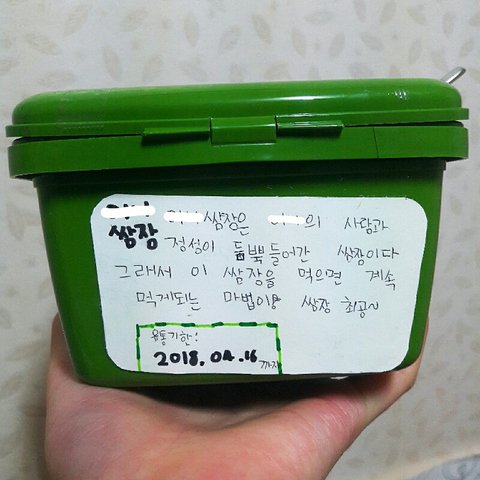 쌈장은 의 사랑과
쌈장
정성이 듬뿍 들어간 쌈장이다
그래서 이 쌈장을 먹으면 계속
먹게되는 쌈장 최공~
유통기한:
2018. 04. 16 까지